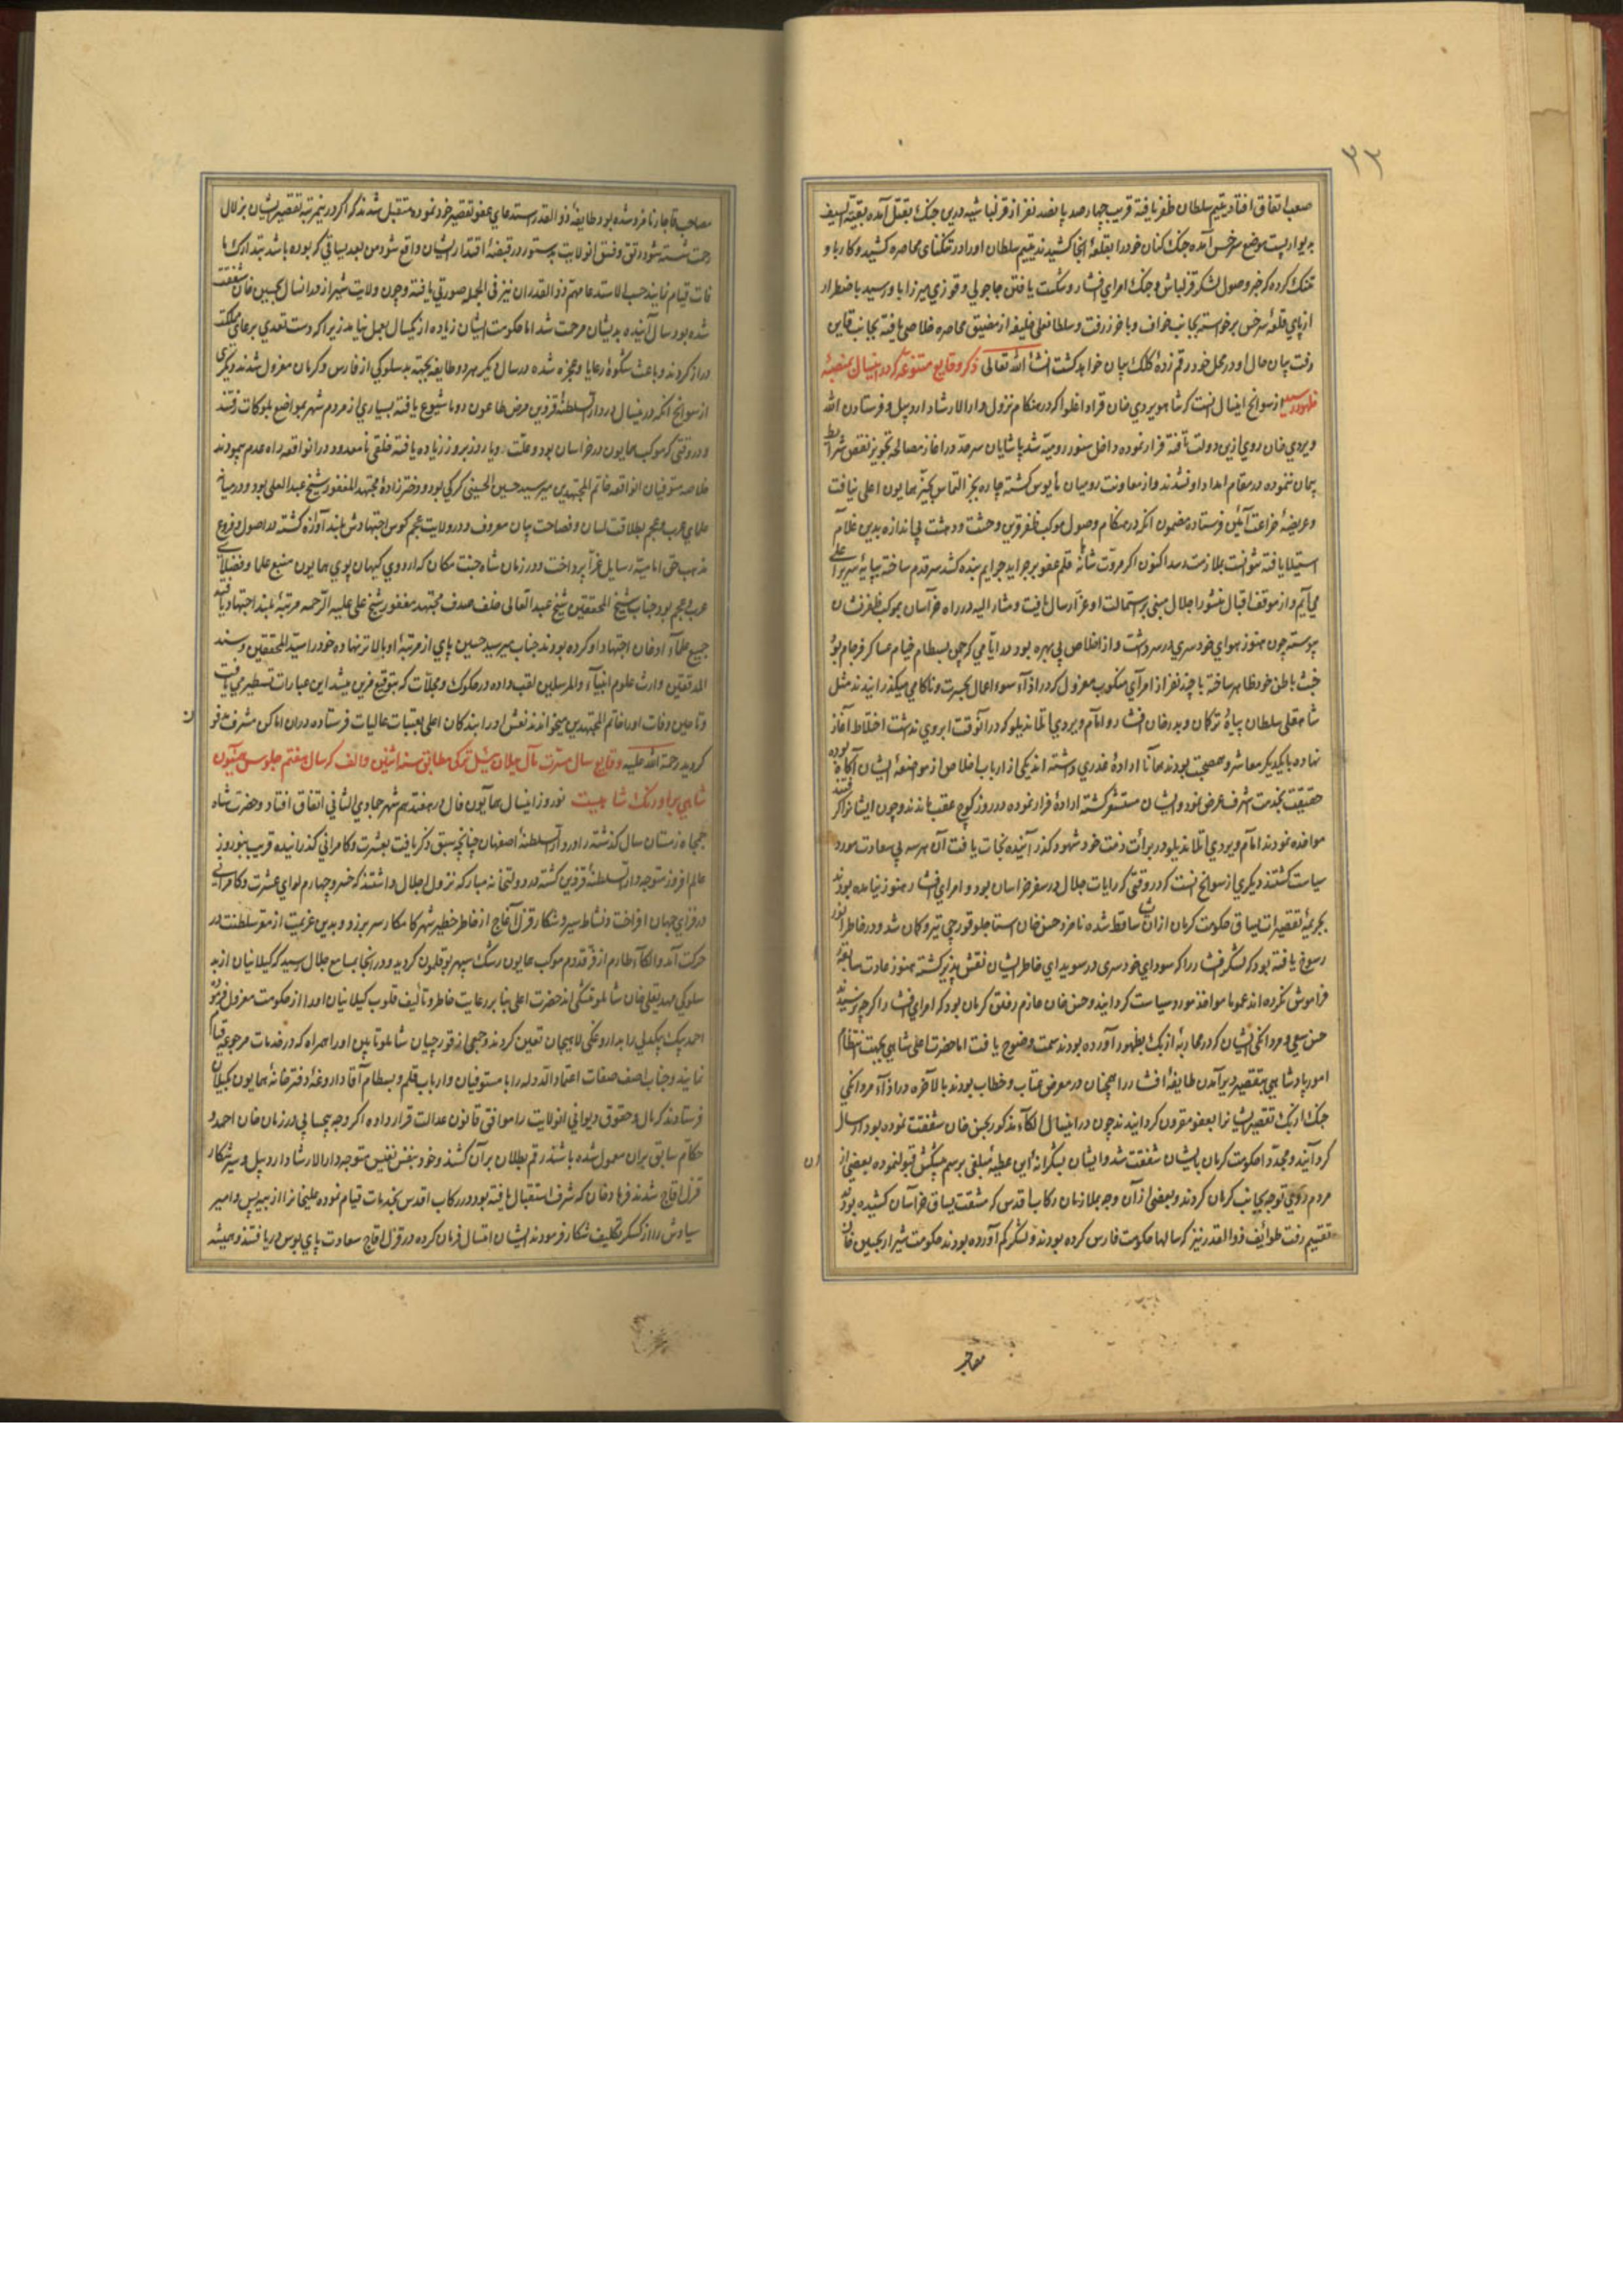 ۳۳
صعب اتفاق افتاد یتیم سلطان ظفر یافته قریب چهارصد پانصد نفر از قزلباشیه درین جنک بقتل آمده بقیة السیف
بدیوار بست موضع سرخس آمده جنک کنان خود را بقلعهٔ آنجا کشیدند یتیم سلطان او را در تنکنای محاصره کشید و کار با و
تنک کرده که خبر وصول لشکر قزلباش و جنک امرای افشار و شکست یافتن حاجولی و قوزی میرزا باو رسید باضطرار
از پای قلعهٔ سرخس برخواسته بجانب خواف و باخرز رفت و سلطانعلی خلیفه از مضیق محاصره خلاصی یافته بجانب قاین
رفت بیان حال او در محل خود رقم زدهٔ کلک بیان خواهد کشت انشاء الله تعالی ذکر وقایع متنوعه که در اینسال بمنصهٔ
ظهور رسید از سوانح اینسال آنست که شاهویردی خان قراداغلو که در هنکام نزول دارالارشاد اردبیل و فرستادن الله
ویردی خان روی ازین دولت تافته فرار نموده داخل سنور رومیه شد پاشایان سرحد در آغاز مصالحه تجویز نقض شرایط
پیمان ننموده در مقام امداد او نشدند و از معاونت رومیان مأیوس کشته چاره بجز التماس بخیر همایون اعلی نیافت
و عریضهٔ ضراعت آئین فرستاده مضمون آنکه در هنکام وصول موکب ظفر قرین وحشت و دهشت بی اندازه بدین غلام
استیلا یافته نتوانست بملازمت رسد اکنون اکر مروّت شاهانه قلم عفو بر جراید جرایم بنده کشد سر قدم ساخته بپایهٔ سریر اعلی
می آیم و از موقف اقبال منشور اجلال مبنی بر استمالت او عزّ ارسال یافت و مشار الیه در راه خراسان بموکب ظفر نشان
پیوسته چون هنوز هوای خودسری در سر داشت و از اخلاص بی بهره بود در ایّامی که چمن بسطام خیام عساکر فرجام بود
خبث باطن خود ظاهر ساخته با چند نفر از امرآی منکوب معزول که در ازآء سوء اعمال بحسرت و ناکامی میکذرانیدند مثل
شاهقلی سلطان بیاهٔ ترکان و بدرخان افشار و امام ویردی ایلاندیلو که در آنوقت ابروی نداشت اختلاط آغاز
نهاده با یکدیکر معاشر و همصحبت بودند همانا ارادهٔ غدری داشته اند یکی از ارباب اخلاص از مواضعهٔ ایشان آکاه بوده
حقیقت بخدمت اشرف عرض نمود و ایشان مستشعر کشته ارادهٔ فرار نموده در روز کوچ عقب ماندند و چون ایشانرا کرفتند
مواخذه نمودند امام ویردی ایلاندیلو در برائت ذمّت خود شهود کذرانیده نجات یافت آن هر سه بی سعادت مورد
سیاست کشتند دیکری از سوانح آنست که در وقتی که رایات جلال در سفر خراسان بود و امرای افشار هنوز نیامده بودند
بجریمهٔ تقصیرات یساق حکومت کرمان از ان ساقط شده نامزد حسن خان استاجلو قورچی تیر و کمان شد و در خاطر انور
رسوخ یافته بود که لشکر افشار را که سودای خودسری در سویدای خاطر ایشان نقش پذیر کشته هنوز عادت سابقهٔ
فراموش نکرده اند عموما مواخذ مورد سیاست کردانید و حسن خان عازم رفتن کرمان بود که امرای افشار را کرچه رسیدند
حسن سعی و مردانکی ایشان که در محاربهٔ ازبک بظهور آورده بودند سمت وضوح یافت اما حضرت اعلی شاهی جهت انتظام
امور پادشاهی بتقصیر دیر آمدن طایفهٔ افشار را همچنان در معرض عتاب و خطاب بودند بالآخره در ازآء مردانکی
جنک ازبک تقصیر ایشانرا بعفو مقرون کردانیدند چون در اینسال الکاء مذکور بحسن خان شفقت نموده بود ارسال
کردآنید و مجدّدا حکومت کرمان بایشان شفقت شد و ایشان بشکرانهٔ این عطیهٔ مبلغی برسم پیشکش قبول نموده بعضی از
مردم روی توجه بجانب کرمان کردند و بعضی از آن وجه بملازمان رکاب اقدس که مشقت یساق خراسان کشیده بودند
تقسیم رفت طوایف ذوالقدر نیز که سالها حکومت فارس کرده بودند و لشکر کم آورده بودند حکومت شیراز بحسین خان
مصاحب قاجار نامزد شده بود طایفهٔ ذوالقدر استدعای عفو تقصیر خود نموده متقبل شدند که اکر درینمرتبه تقصیر ایشان بزلال
رحمت شسته شود و رتق و فتق آنولایت بدستور در قبضهٔ اقتدار ایشان واقع شود من بعد بیساقی که بوده باشد بتدارک ما
فات قیام نمایند حسب الاستدعا مهمّ ذوالقدران نیز فی الجمله صورتی یافته و چون ولایت شیراز در انسال بحسین خان شفقت
شده بود سال آینده بدیشان مرحمت شد اما حکومت ایشان زیاده از یکسال بعمل نیامد زیرا که دست تعدی بر رعایای مملکت
دراز کردند و باعث شکوهٔ رعایا و عجزه شده در سال دیکر هر دو طایفه بجهته بدسلوکی از فارس و کرمان معزول شدند دیکری
از سوانح آنکه در اینسال در دار السلطنهٔ قزوین مرض طاعون و وبا شیوع یافته بسیاری از مردم شهر بمواضع بلوکات رفتند
و در وقتی که موکب همایون در خراسان بود و علّت وبا روز بروز زیاده یافته خلقی نامعدود در انواقعه راه عدم پیمودند
خلاصه متوفیان انواقعه خاتم المجتهدین میر سید حسین الحسینی کرکی بود و دخترزادهٔ مجتهد المغفور شیخ عبدالعلی بود و در میانه
علمای عرب و عجم بطلاقت لسان و فصاحت بیان معروف و در ولایت عجم کوس اجتهادش بلند آوازه کشته در اصول و فروع
مذهب حق امامیّه رسایل غرّا پرداخت و در زمان شاه جنت مکان که اردوی کیهان پوی همایون منبع علما و فضلای
عرب و عجم بود جناب شیخ المحققین شیخ عبدالعالی خلف صدف مجتهد مغفور شیخ علی علیه الرّحمه مرتبهٔ بلند اجتهاد یافته
جمیع علمآء اذعان اجتهاد او کرده بودند جناب میر سید حسین پای از مرتبهٔ او بالاتر نهاده خود را سیّد المحققین و سند
المدققین وارث علوم الانبیآء و المرسلین لقب داده در صکوک و سجلّات که بتوقیع قرین میشد این عبارات تسطیر می یافت
و تا حین وفات او را خاتم المجتهدین میخواندند نعش او را بندکان اعلی بعتبات عالیات فرستاده در ان اماکن مشرفه دفن
کردید رحمة الله علیه وقایع سال مسرت مآل ییلان ئیل ترکی مطابق سنه اثنین و الف که سال هفتم جلوس همیون
شاهی بر اورنک شاهیست نوروز اینسال همآیون فال در هفتدهم شهر جمادی الثانی اتفاق افتاد و حضرت شاه
جمجاه زمستان سال کذشته را در دار السلطنهٔ اصفهان چنانچه سبق ذکر یافت بعشرت و کامرانی کذرانیده قریب بنوروز
عالم افروز متوجه دار السلطنهٔ قزوین کشته در دولتخانه مبارکه نزول اجلال داشتند که خسرو چهارم لوای عشرت و کامرانی
در فزای جهان افراخت و نشاط سیر و شکار قزل آغاج از خاطر خطیر شهرکامکار سر بر زد و بدین عزیمت از مقرّ سلطنت در
حرکت آمد و الکآء طارم از فرّ قدوم موکب همایون رشک سپهر بوقلمون کردید و در آنجا بسامع جلال رسید که کیلانیان از بد
سلوکی مهدیقلی خان شاملو متشکی اند حضرت اعلی بنابر رعایت خاطر و تألیف قلوب کیلانیان او را از حکومت معزول فرموده
احمد بیک بیکدلی را بداروغکی لاهیجان تعیین کردند و جمعی از قورچیان شاملو تابین او را همراه که در خدمات مرجوعه قیام
نمایند و جناب آصف صفات اعتماد الدوله را با مستوفیان و ارباب قلم و بسطام آقا داروغهٔ دفترخانهٔ همایون بکیلان
فرستادند که مال و حقوق دیوانی انولایت را موافق قانون عدالت قرار داده اکر وجه بیحسابی در زمان خان احمد و
حکام سابق بران معمول شده باشد رقم بطلان بر آن کشند و خود بنفس نفیس متوجه دارالارشاد اردبیل و سیر و شکار
قزل اقاج شدند فرهاد خان که شرف استقبال یافته بود در رکاب اقدس بخدمات قیام نموده علیخانرا از بیه پس و امیر
سیاوش را از کسکر تکلیف شکار فرمودند ایشان امتثال فرمان کرده در قزل اقاج سعادت پای بوس دریافتند و همیشه